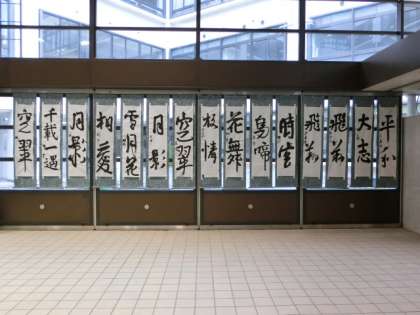 平和
大志
飛翔
飛翔
時生
鳥啼
花舞
友情
空翠
月影
雪月花
相愛
月影
千載一遇
空翠